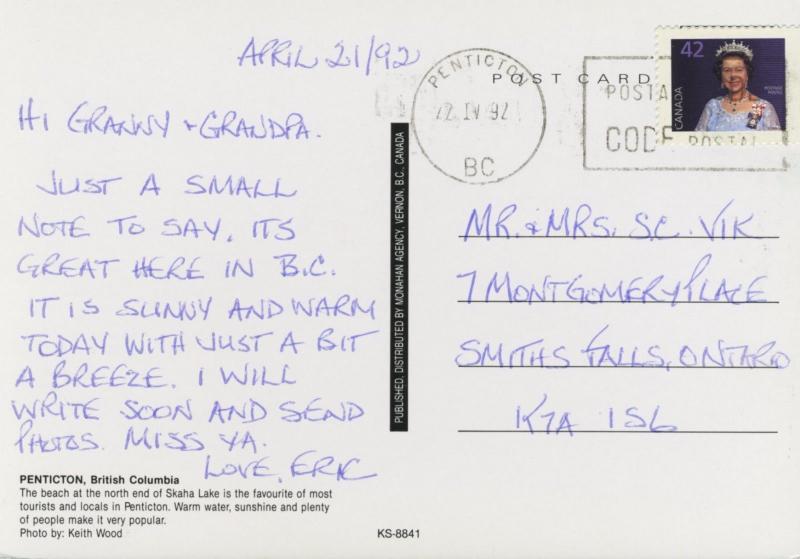 APRIL 21/92
HI GRANNY + GRANDPA.
JUST A SMALL
NOTE TO SAY, ITS
GREAT HERE IN B.C.
IT IS SUNNY AND WARM
TODAY WITH JUST A BIT
A BREEZE. I WILL
WRITE SOON AND SEND
PHOTOS. MISS YA.
LOVE, ERIC
PENTICTON, British Columbia
The beach at the north end of Skaha Lake is the favourite of most
tourists and locals in Penticton. Warm water, sunshine and plenty
of people make it very popular.
Photo by: Keith Wood
KS-8841
PUBLISHED, DISTRIBUTED BY MONAHAN AGENCY, VERNON, B.C., CANADA
POST CARD
PENTICTON
22 IV 92
BC
POSTA
CODE POSTAL
42
CANADA
POSTAGE
POSTES
MR. & MRS. S.C. VIK
7 MONTGOMERY PLACE
SMITHS FALLS, ONTARIO
K7A 1S6